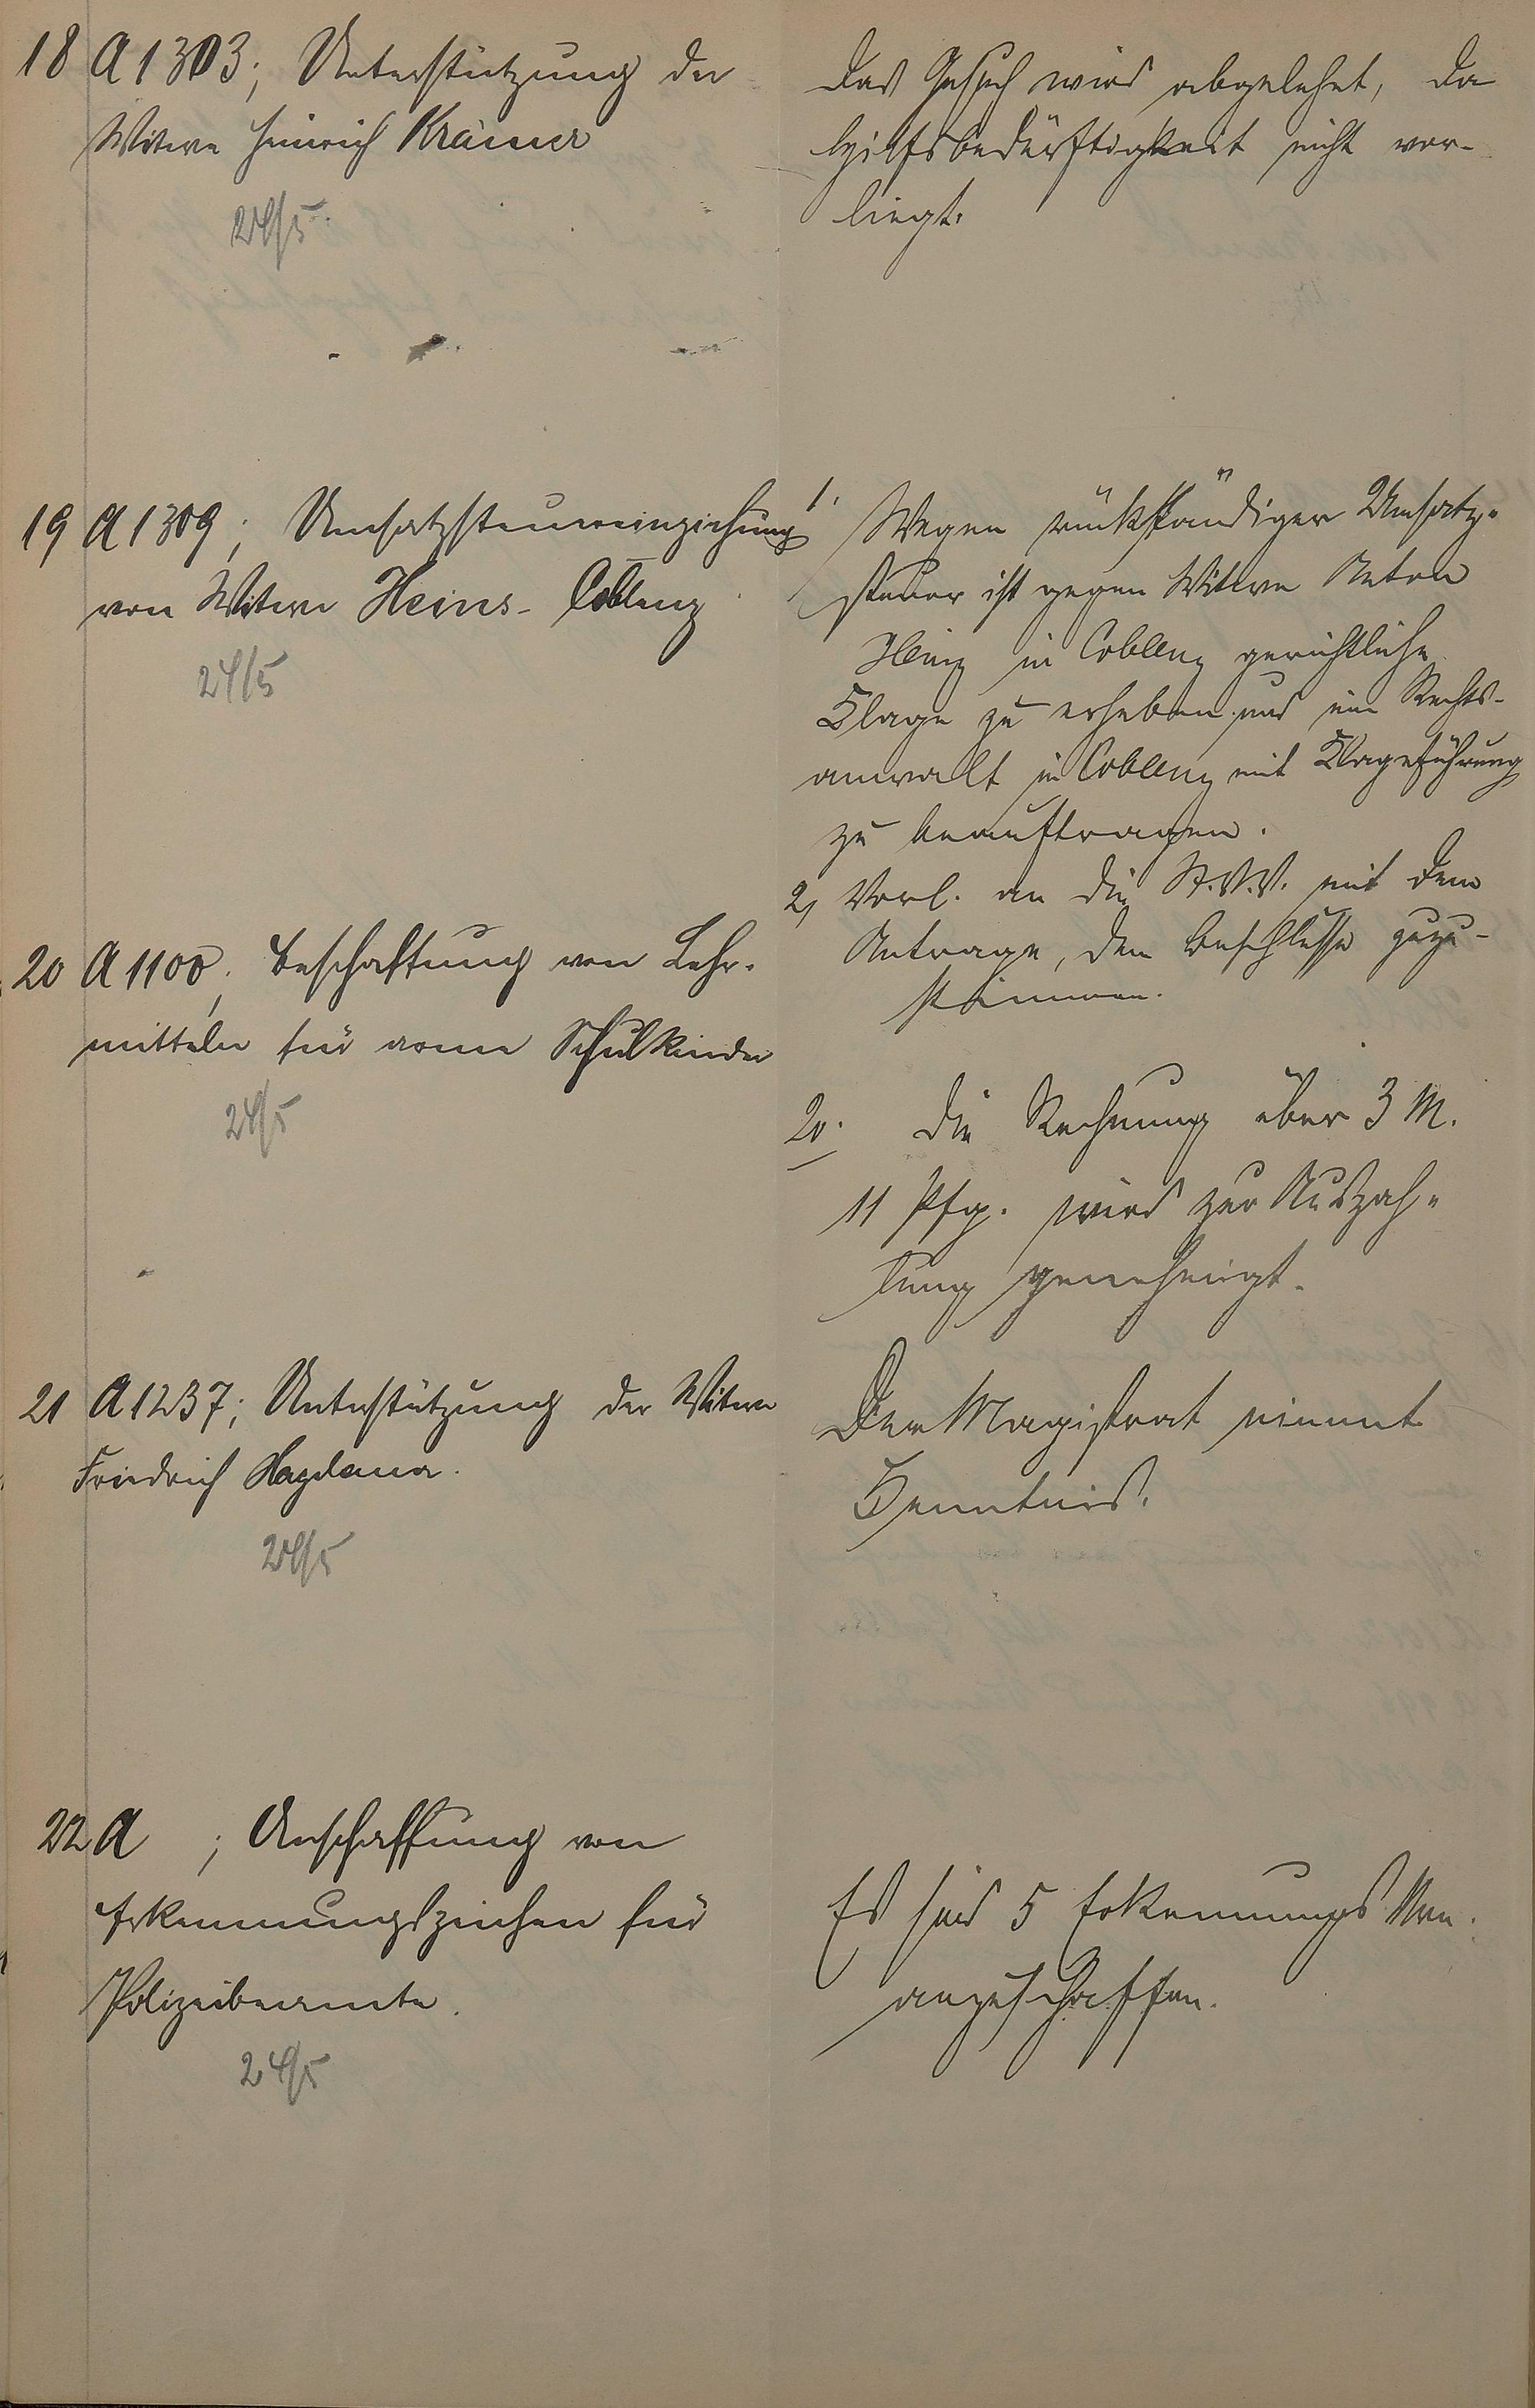 18 A 1303; Unterstützung der
Witwe Heinrich Krämer
24/5.
Das Gesuch wird abgelehnt, da
Hilfsbedürftigkeit nicht vor-
liegt.
19 A 1309; Umsatzsteuereinziehung
von Witwe Heins- Coblenz
24/5
1. Wegen rückständiger Umsatz-
steuer ist gegen Witwe Anton
Heinz in Coblenz gerichtliche
Klage zu erheben und ein Rechts-
anwalt in Coblenz mit Klageführung
zu beauftragen.
2, Vorl. an die St.V.V. mit dem
Antrage, dem Beschlusse zuzu-
stimmen.
20 A 1100; Beschaffung von Lehr-
mitteln für arme Schulkinder
24/5
20. Die Rechnung über 3 M.
11 Pfg. wird zur Auszah-
lung genehmigt.
21 A 1237; Unterstützung der Witwe
Friedrich
24/5
Der Magistrat nimmt
Kenntnis.
22 A ; Anschaffung von
Erkennungszeichen für
Polizeibeamte.
24/5
Es sind 5 Erkennungs
anzuschaffen.